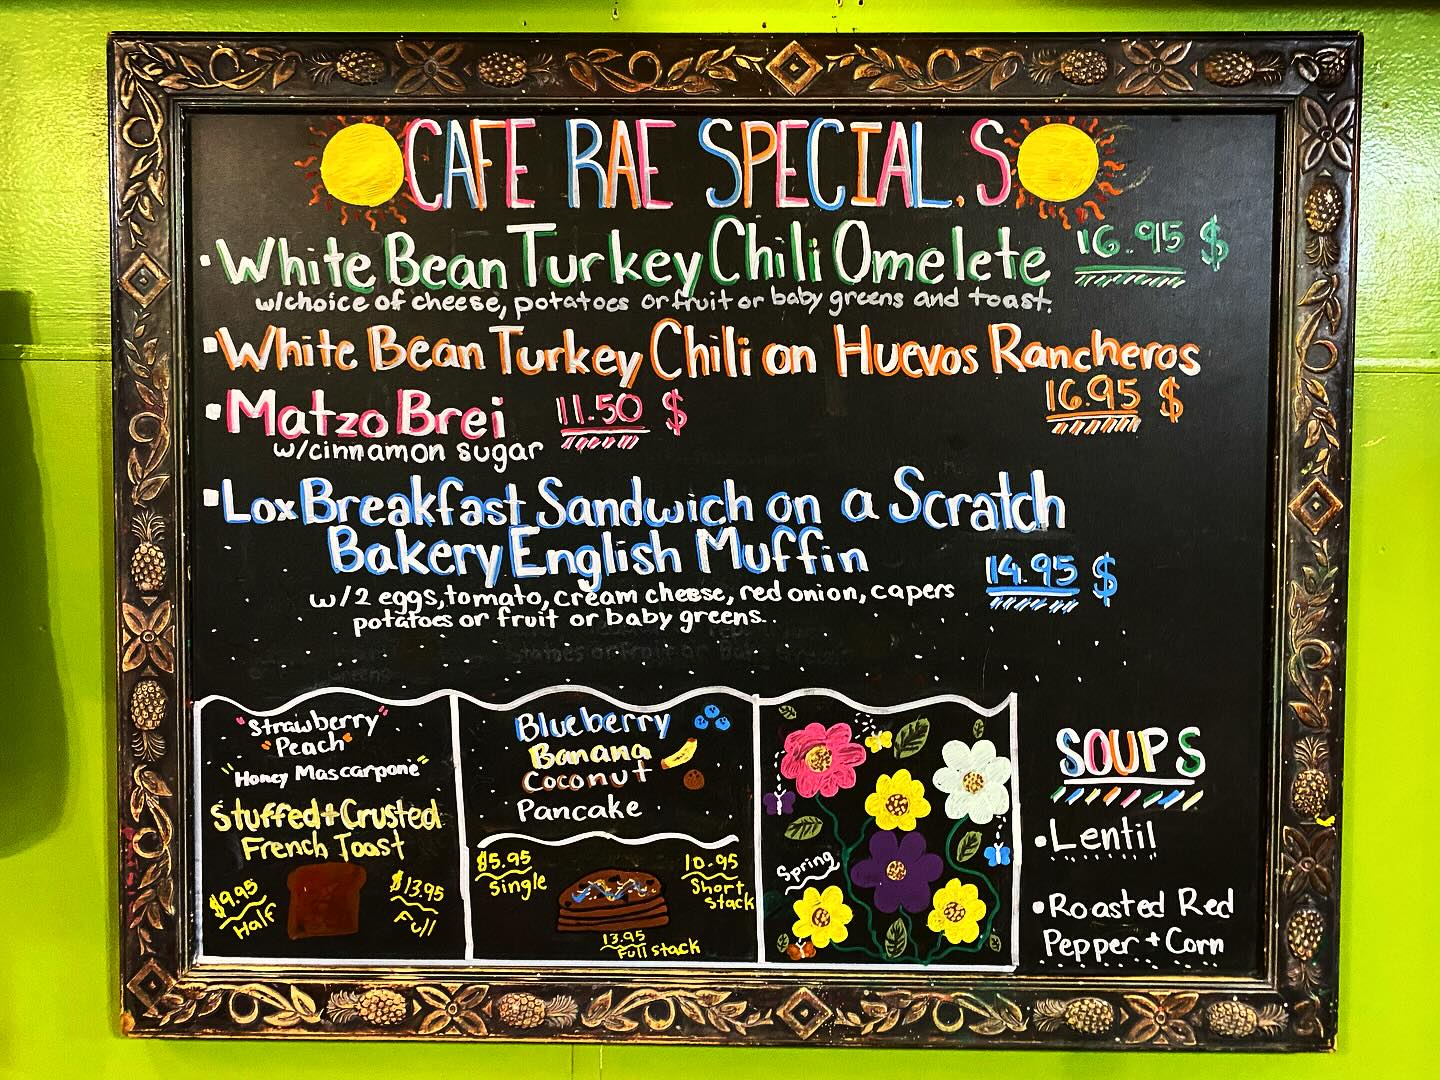 CAFE RAE SPECIAL.S
White Bean Turkey Chili Omelete 16.95 $
w/choice of cheese, potatoes or fruit or baby greens and toast.
White Bean Turkey Chili on Huevos Rancheros
16.95 $
Matzo Brei 11.50 $
w/cinnamon sugar
Lox Breakfast Sandwich on a Scratch
Bakery English Muffin 14.95 $
w/2 eggs, tomato, cream cheese, red onion, capers
potatoes or fruit or baby greens..
"Strawberry"
"Peach"
"Honey Mascarpone"
Stuffed + Crusted
French Toast
$9.95
Half
$13.95
Full
Blueberry
Banana
Coconut
Pancake
$5.95
Single
10.95
Short
stack
13.95
Full stack
Spring
SOUPS
Lentil
Roasted Red
Pepper + Corn